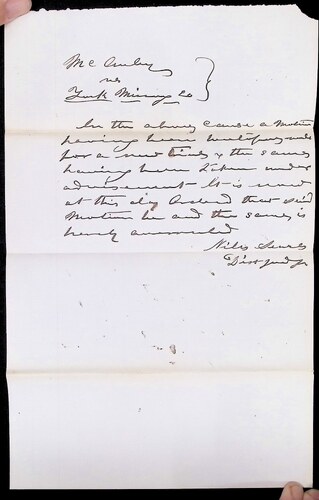 Mc Cauley
vs
York Mining Co
In the above cause a Motion
having been heretofore made
for a new trial & the same
having been taken under
advisement It is now
at this day Ordered that said
Motion be and the same is
hereby overruled
Niles Searls
Dist Judge